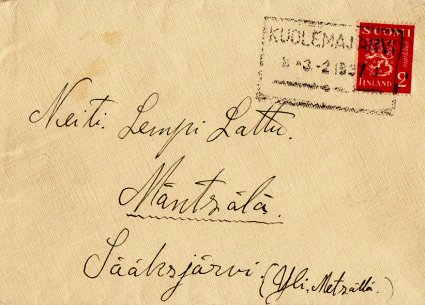 KUOLEMAJÄRVI
SUOMI
-3-2 193
2
FINLAND
Neiti. Lempi Lattu.
Mäntsälä.
Sääksjärvi. (Yli. Metsällä.)